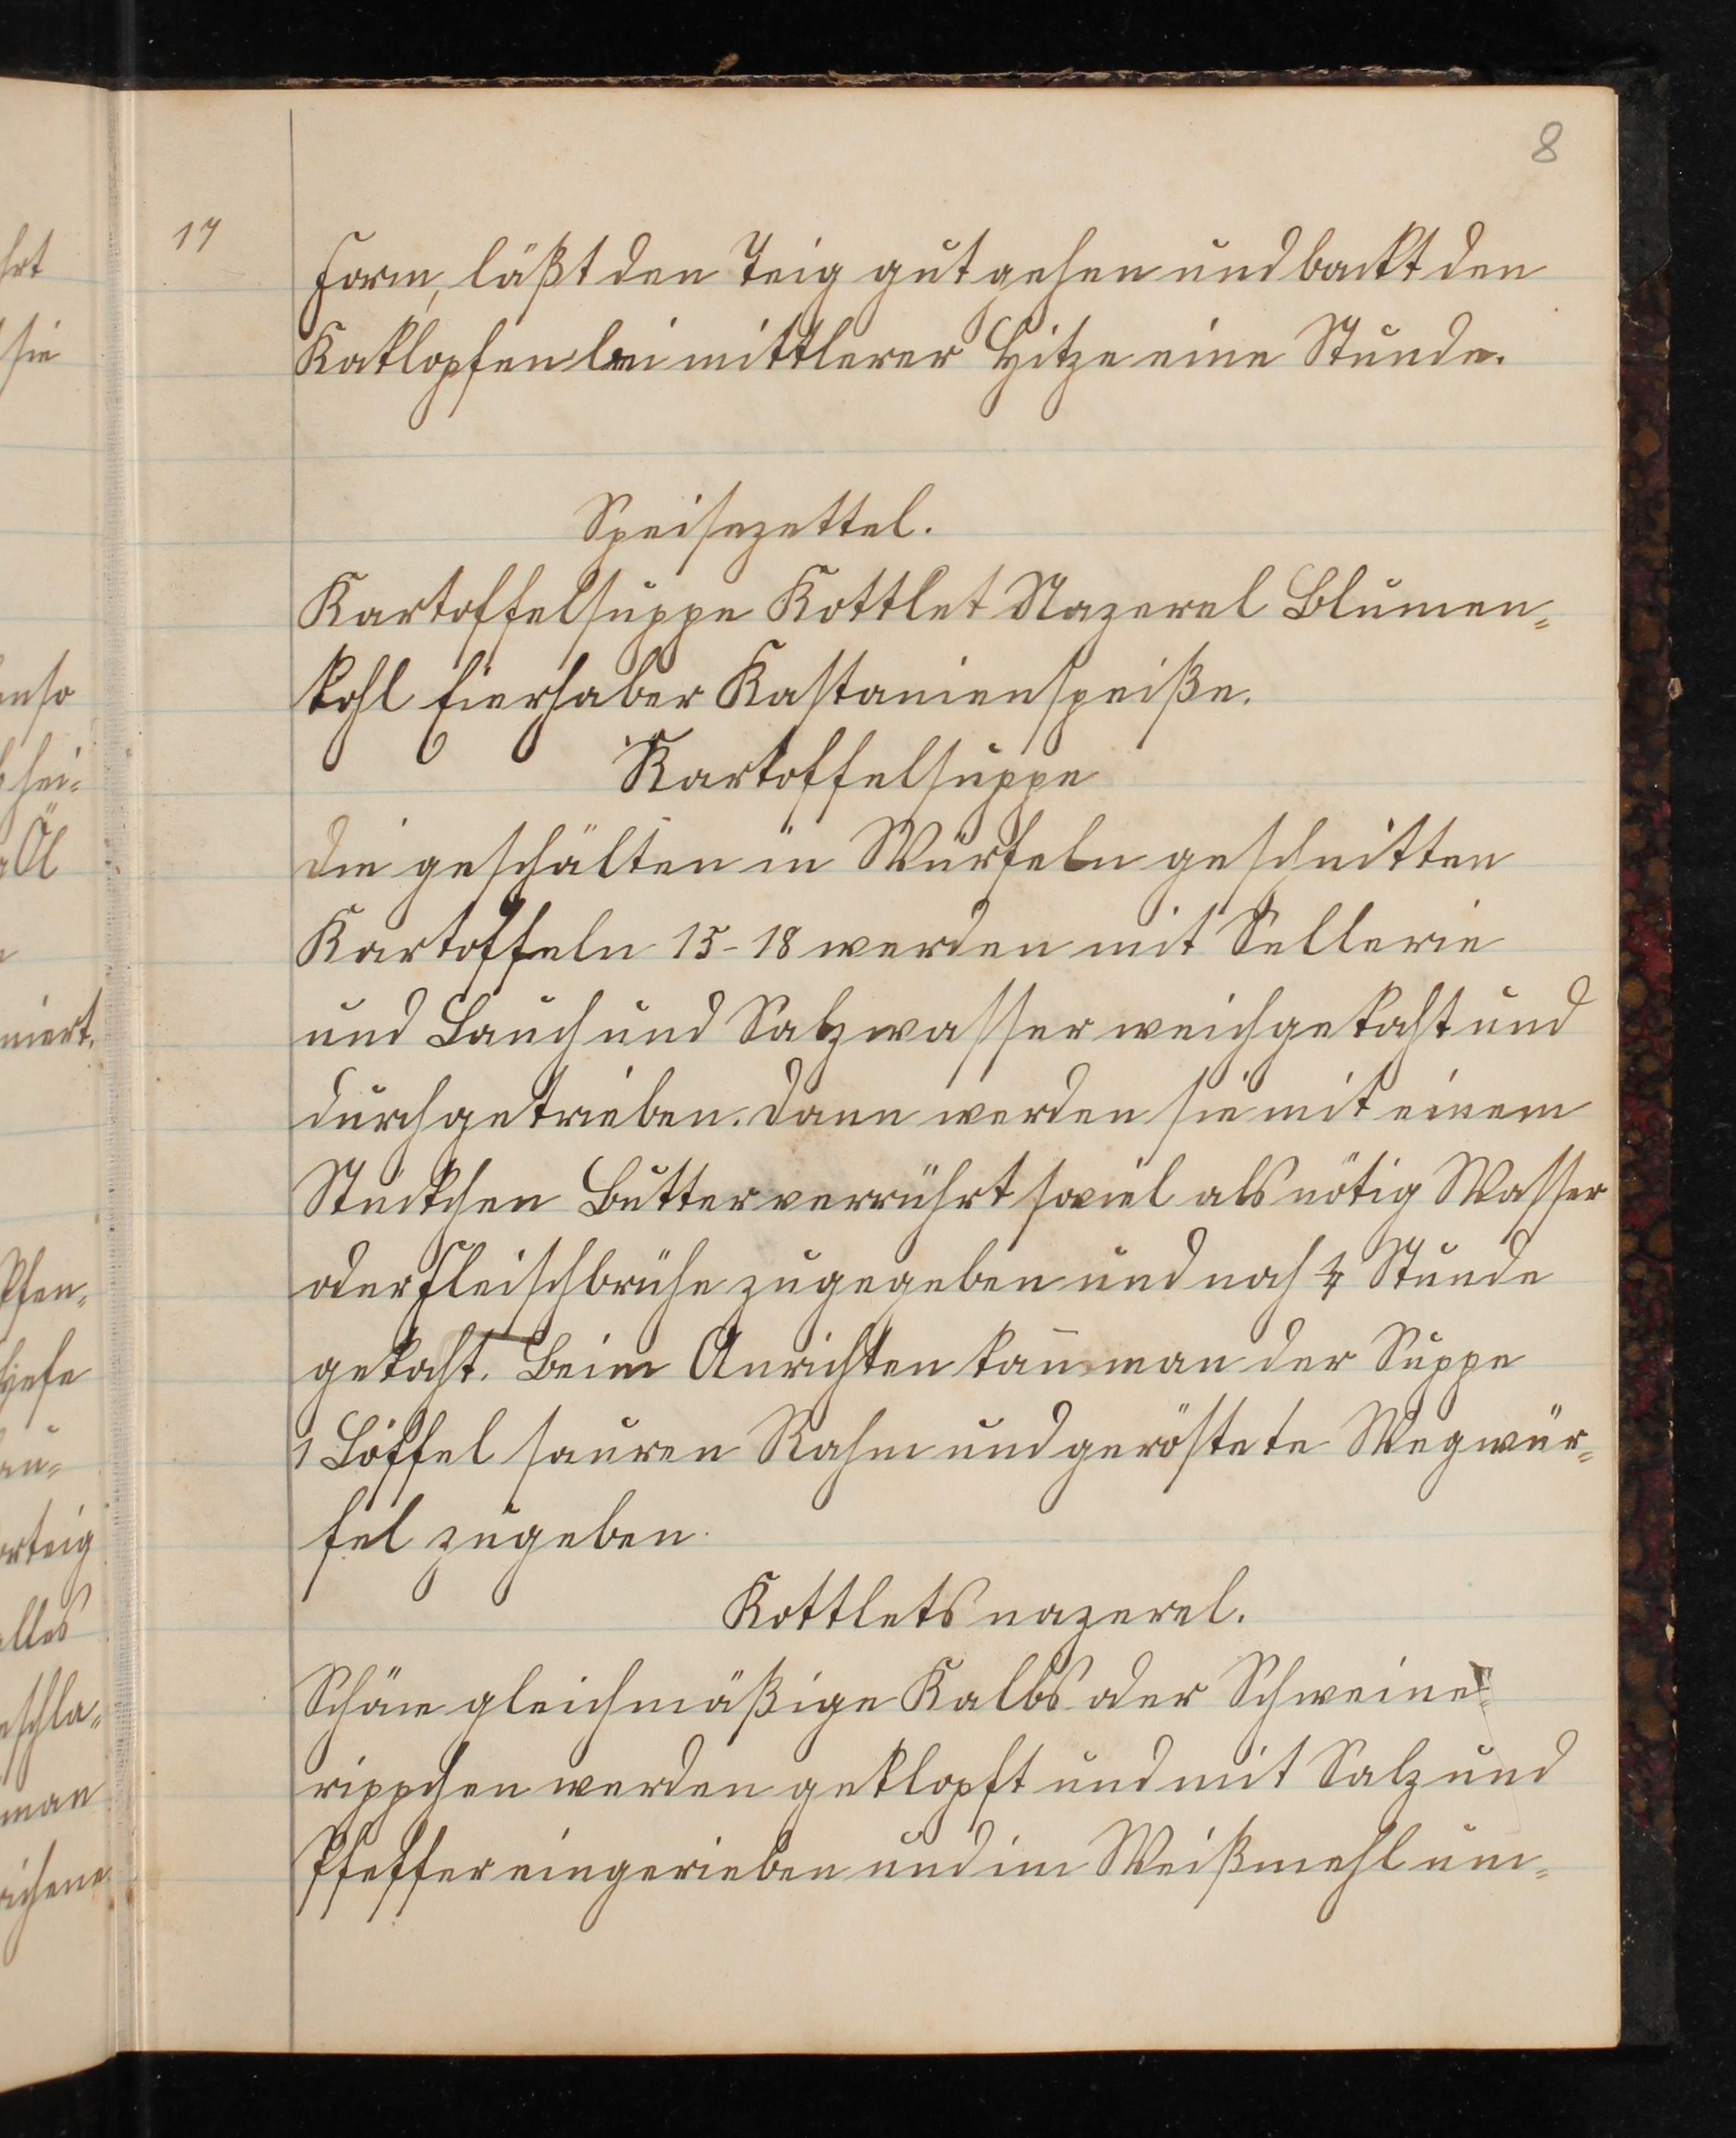 8
17
Form, läßt den Teig gut gehen und backt den
Kaklopfen bei mittlerer Hitze eine Stunde.
Speisezettel.
Kartoffelsuppe Kottlet Nazerel Blumen„
kohl Eierhaber Kastanienspeiße.
Kartoffelsuppe
Die geschälten in Würfeln geschnitten
Kartoffeln 15-18 werden mit Sellerie
und Lauch und Salzwasser weichgekocht und
durchgetrieben. Dann werden sie mit einem
Stückchen Butter verrührt soviel als nötig Wasser
oder Fleischbrühe zugegeben und noch Stunde
gekocht. Beim Anrichten kan̄ man der Suppe
1 Löffel sauren Rahm und geröstete Wegwür„
fel zugeben.
Kottlets nazerel.
Schöne gleichmäßige Kalbs oder Schweine
rippchen werden geklopft und mit Salz und
Pfeffer eingerieben und im Weißmehl um„
hrt
sie
enso
hei-
Öl
niert.
Pfen„
Hefe
au„
orteig
alles
eschla„
man
ichene